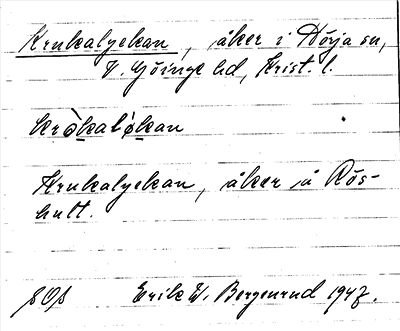 Krukalyckan, åker i Nörja sn,
V. Göinge hd, Krist. l.
krùkalỳkan
Krukalyckan, åker på Rös-
hult.
SOS Erik W. Bergenrud 1947.